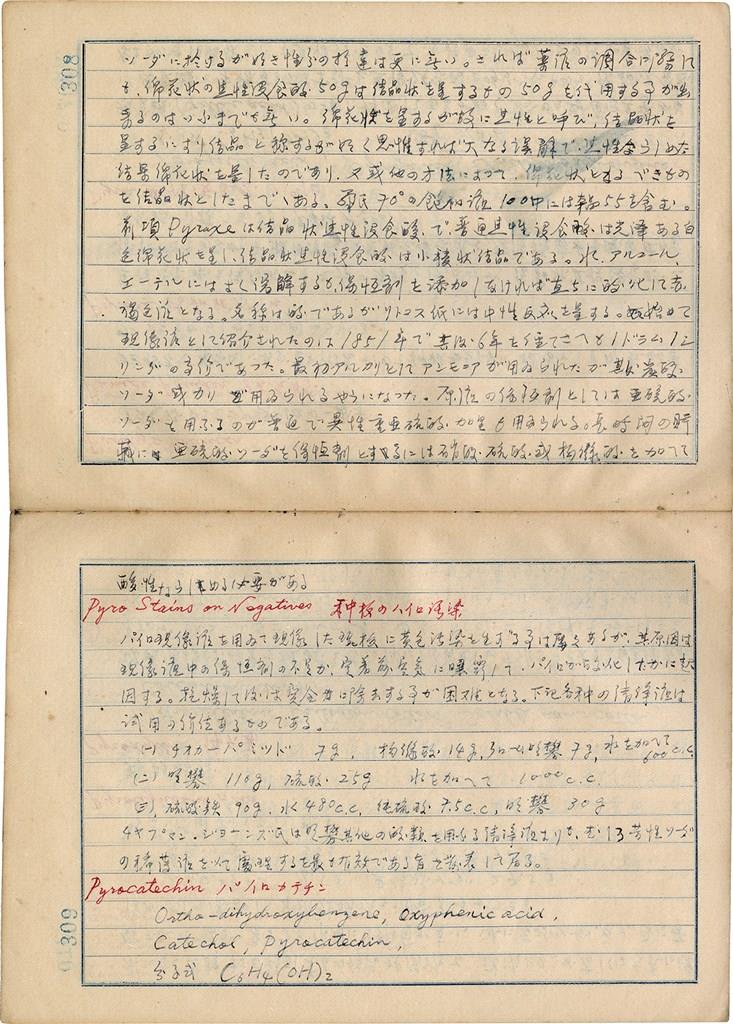 308
ソーダに於けるが如き性分の相違は更に無い。されば薬液の調合に際に
も、綿花状の焦性没食酸50gは結晶状を呈するもの50gを代用する事が出
来るのはいふまでも無い。綿花状を呈するが故に焦性と呼び、結晶状を
呈するにより結晶と称するが如く思惟すれば大なる誤解で、焦性ならしめた
結果綿花状を呈したのであり、又或他の方法によつて、綿花状となるべきもの
を結晶状としたまでゝある。華氏70°の飽和液100中には 55を含む。
前項Pyraxeは結晶状焦性没食酸で普通焦性没食酸は光澤ある白
色綿花状を呈し、結晶状焦性没食酸は小稜状結品である。水、アルコール、
エーテルにはよく溶解するが、保恒剤を添加しなければ直ちに酸化して赤
褐色液となる。名称は酸であるがリトマス紙には中性反応を呈する。始めて
現像液として紹介されたのは1851年で其後6年を経てさへも1ドラム1シ
リングの高価であつた。最初アルカリとしてアンモニアが用ゐられたが其後炭酸
ソーダ或カリが用ゐられるやうになつた。原液の保恒剤としては亜硫酸
ソーダを用ふるのが普通で異性重亜硫酸加里も用ゐられる。長時間の貯
蔵には亜硫酸ソーダを保恒剤とするには硝酸、硫酸、或枸櫞酸を加へて
酸性ならしめる必要がある
Pyro Stains on Negatives 種板のパイロ汚染
パイロ現像液を用ゐて現像した種板に黄色汚染を生ずる事は屡々あるが、其原因は
現像液中の保恒剤の不足か、定着前空気に曝露して、パイロが酸化したかに起
因する。乾燥して後は完全に除去する事が困難となる。下記各種の清浄液は
試用の価値あるものである。
(一) チオカーバミッド 7g, 枸櫞酸 14g, 明礬 7g, 水を加へて 600c.c.
(二) 明礬 110g, 硫酸 25g 水を加へて 1000c.c.
(三) 硫酸鉄 90g, 水 480c.c, 純硫酸 7.5c.c, 明礬 30g
チャプマン・ジョーンズ氏は明礬其他の酸類を用ゐる清浄液よりも、苛性ソーダ
の稀薄液を以て處理するを最も有效である旨を発表して居る。
Pyrocatechin パイロカテチン
Ortho-dihydroxybenzene, Oxyphenic acid,
Catechol, Pyrocatechin,
分子式 C6H4(OH)2
309